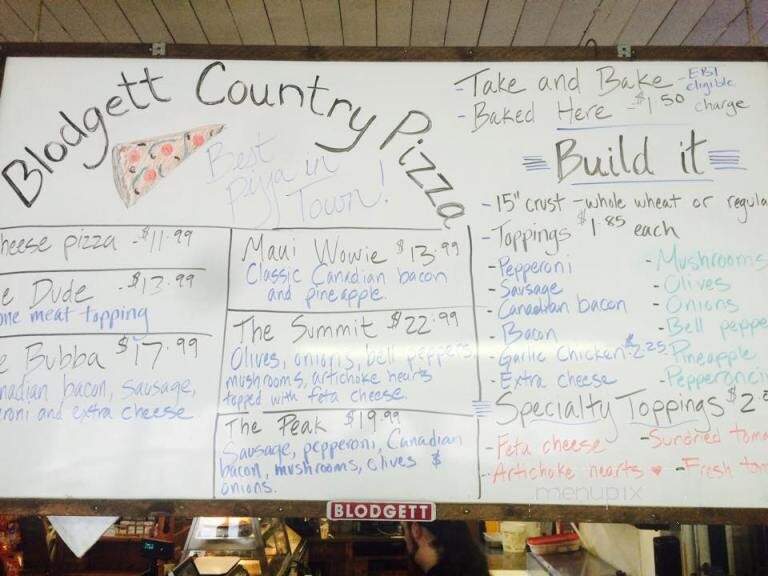 Blodgett Country Pizza
Best
Pizza in
Town!
heese pizza - $11.99
e Dude - $13.99
me meat topping
e Bubba $17.99
nadian bacon, sausage,
roni and extra cheese
Maui Wowie $13.99
Classic Canadian bacon
and pineapple
The Summit $22.99
Olives, onions, bell peppers,
mushrooms, artichoke hearts
topped with feta cheese
The Peak $19.99
Sausage, pepperoni, Canadian
bacon, mushrooms, olives &
onions.
- Take and Bake - EBT eligible
- Baked Here - $1.50 charge
Build it
- 15" crust - whole wheat or regula
- Toppings $1.85 each
- Pepperoni
- Sausage
- Canadian bacon
- Bacon
- Garlic Chicken - $2.25
- Extra cheese
- Mushrooms
- Olives
- Onions
- Bell peppe
- Pineapple
- Pepperonci
Specialty Toppings $2.
- Feta cheese
- Artichoke hearts
- Sundried toma
- Fresh tom
menupix
BLODGETT